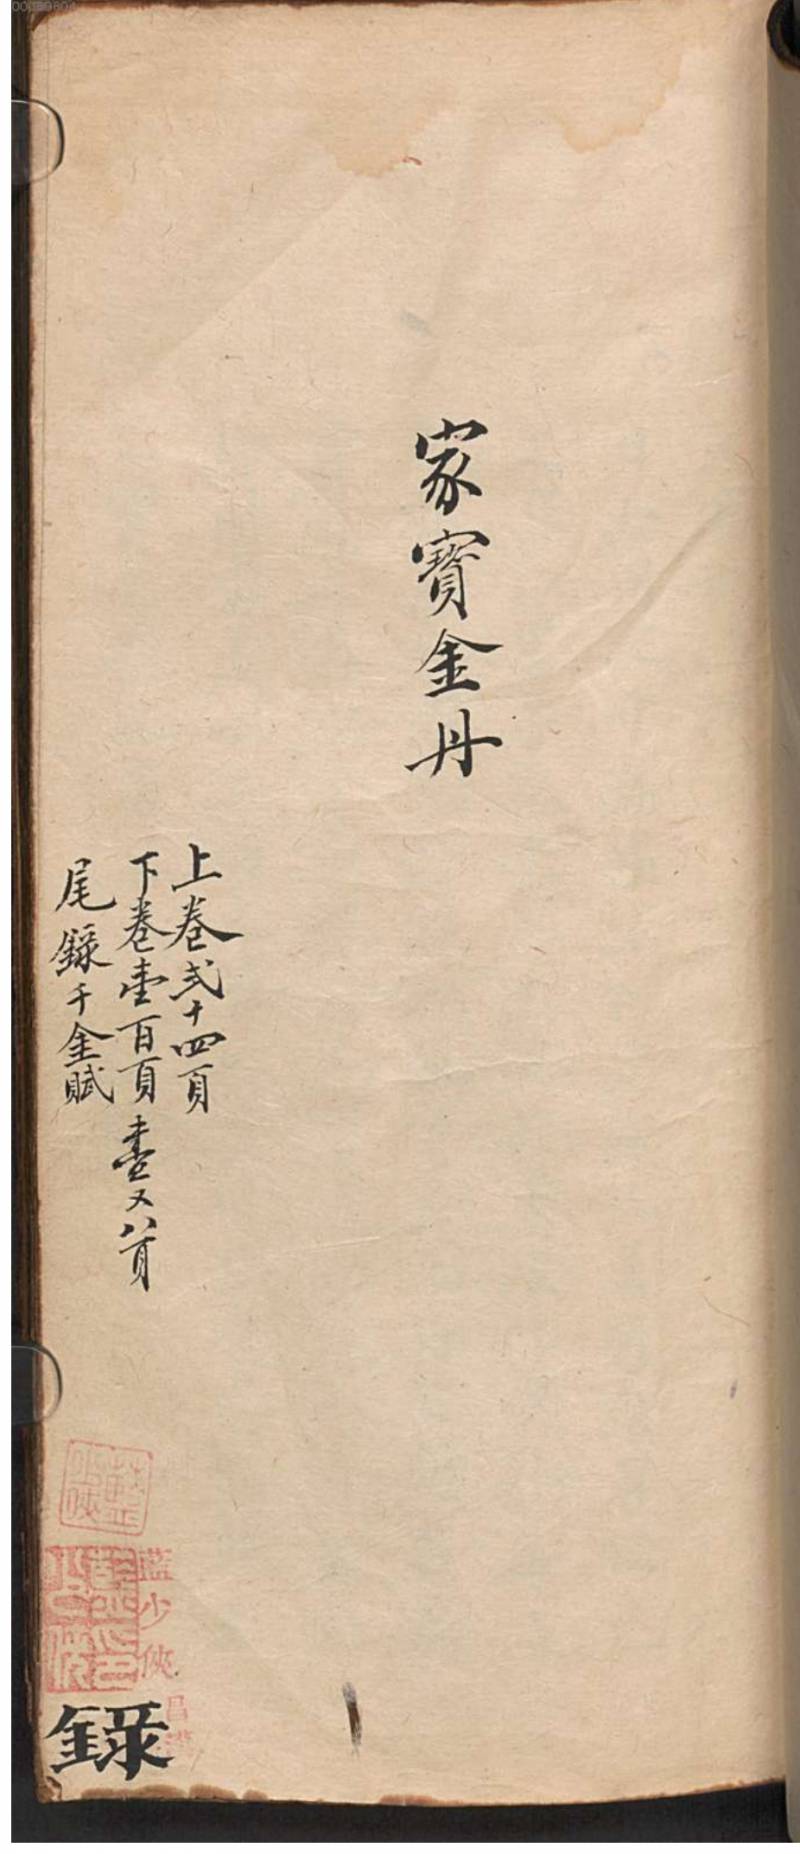 家寳金丹
上卷弍十四頁
下卷壹百頁 壹又八頁
尾錄千金賦
藍少俠
昌
錄